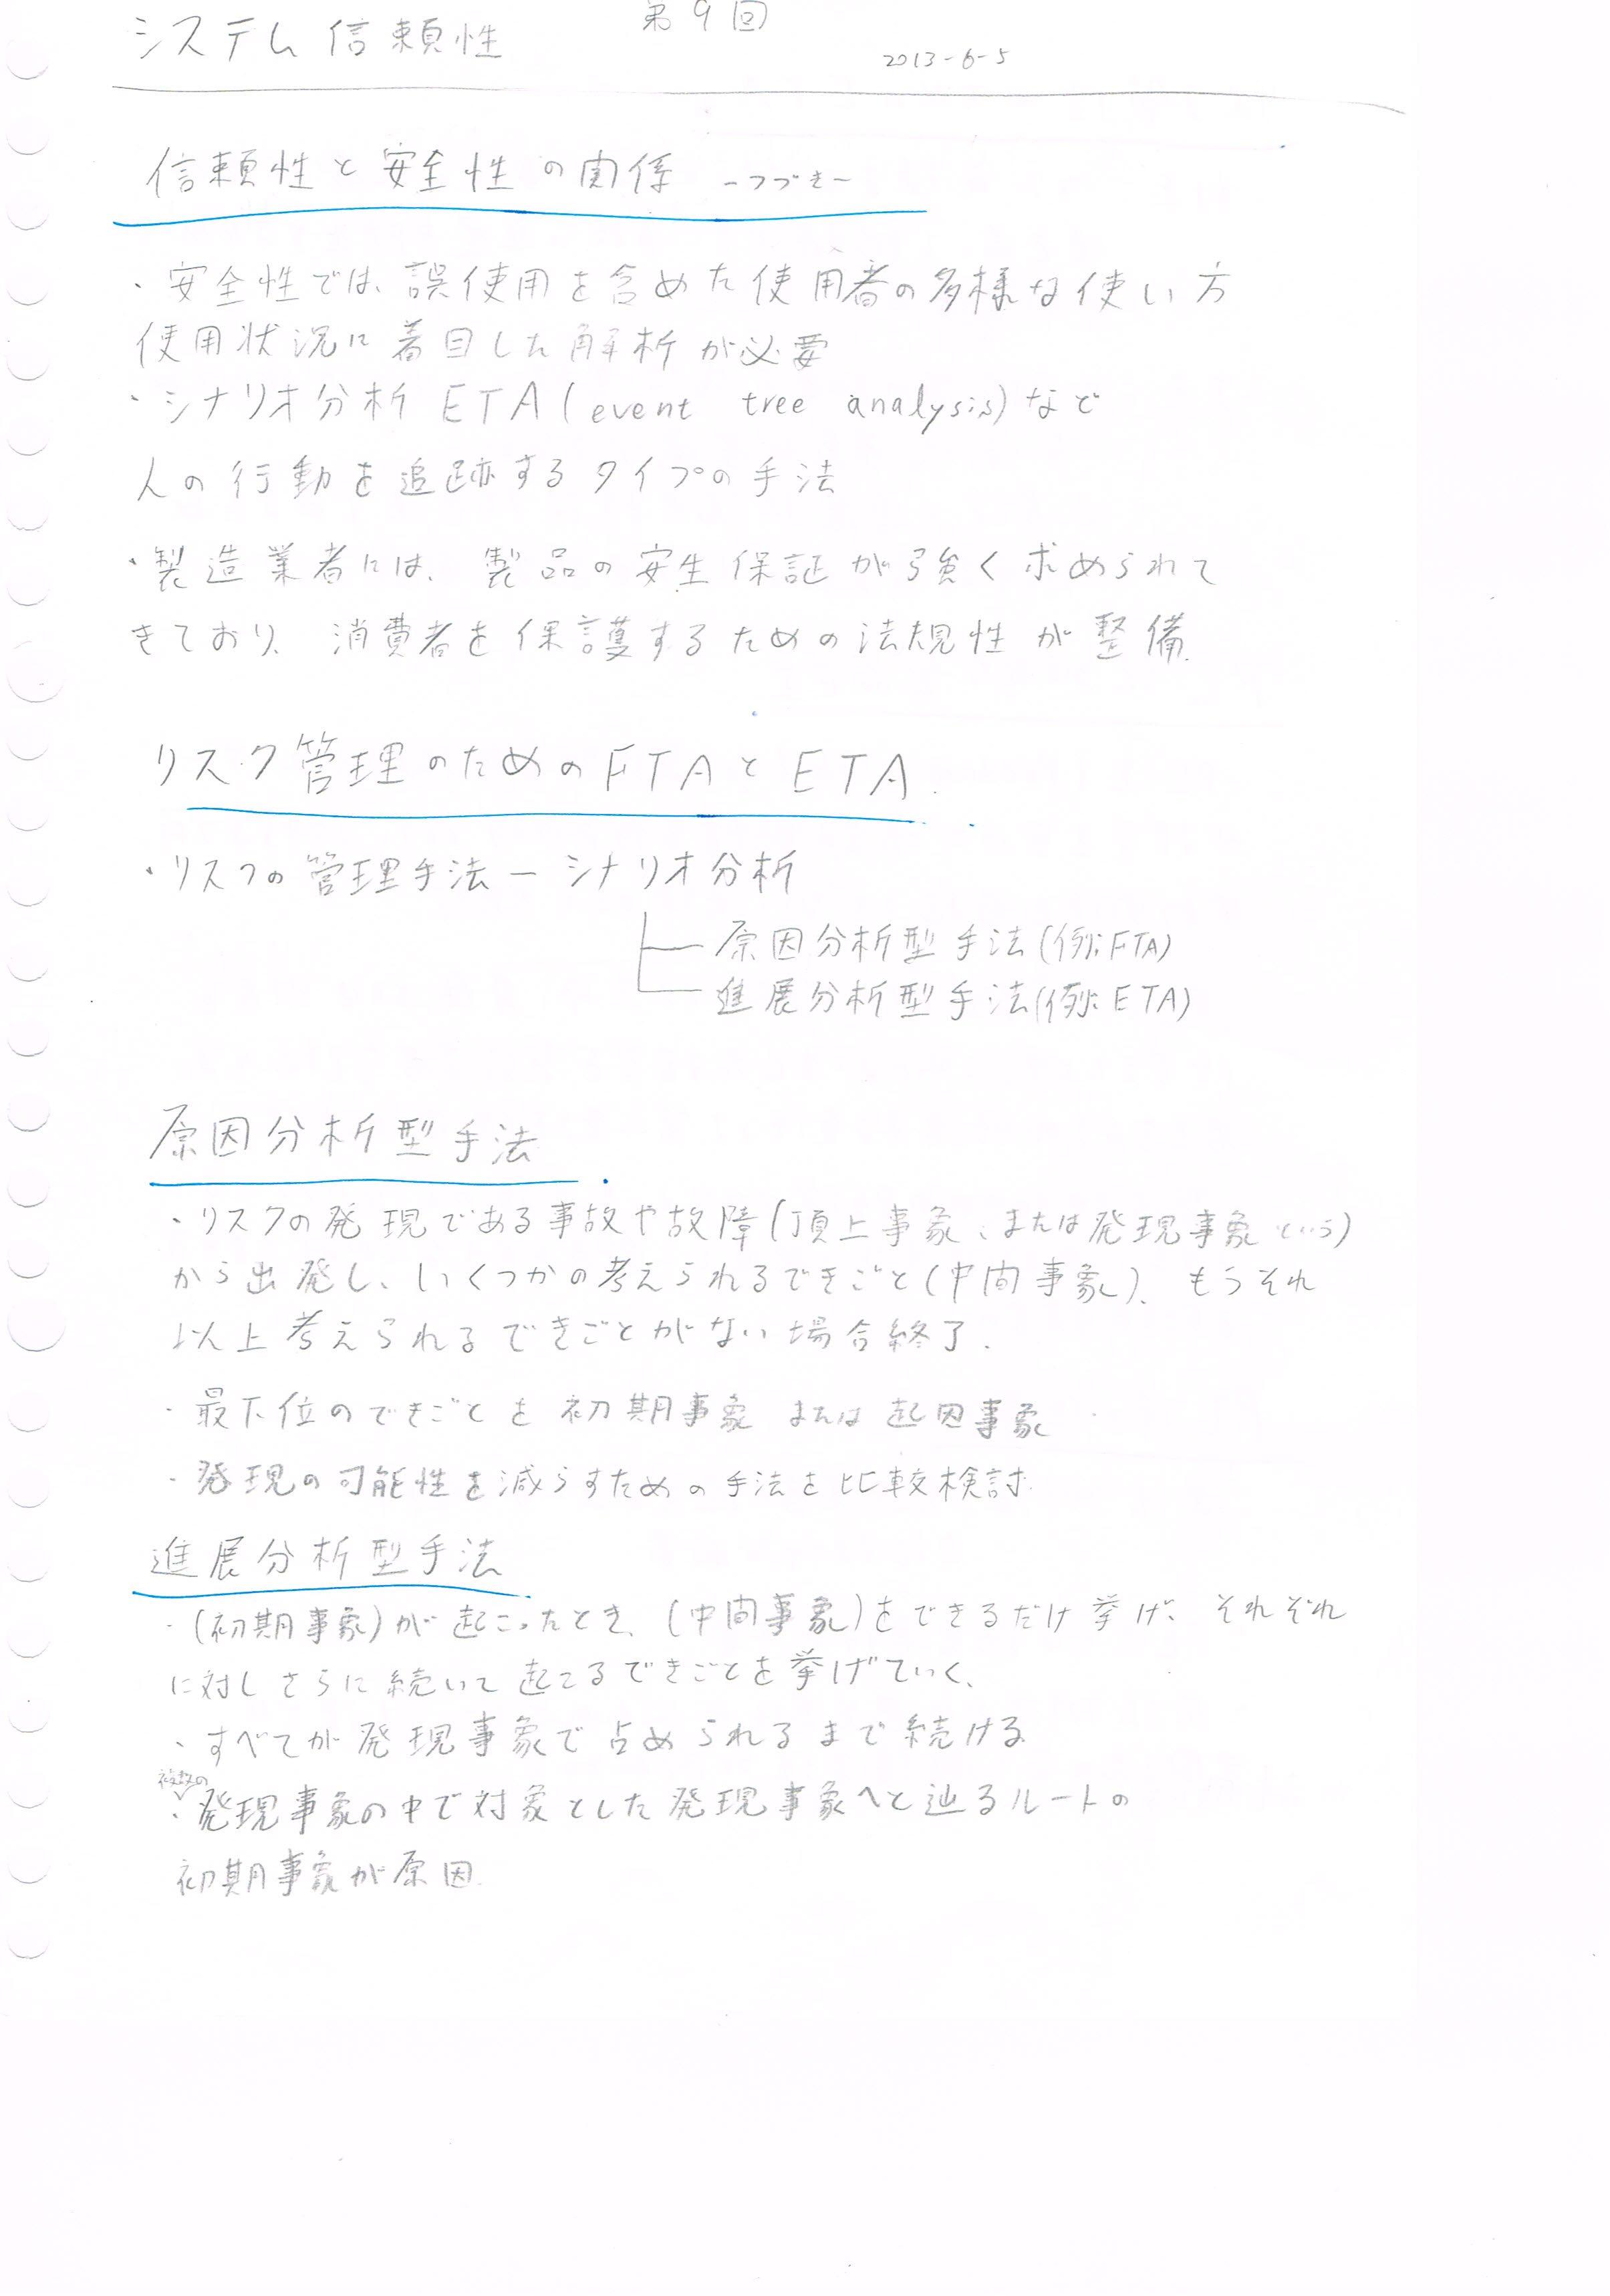 システム信頼性 第9回
2013-6-5
信頼性と安全性の関係 -つづき-
・安全性では、誤使用を含めた使用者の多様な使い方
使用状況に着目した解析が必要
・シナリオ分析 ETA(event tree analysis)など
人の行動を追跡するタイプの手法
・製造業者には、製品の安生保証が強く求められて
きており、消費者を保護するための法規性が整備.
リスク管理のためのFTAとETA.
・リスクの管理手法 ー シナリオ分析
原因分析型手法(例:FTA)
進展分析型手法(例:ETA)
原因分析型手法
・リスクの発現である事故や故障(頂上事象、または発現事象という)
から出発し、いくつかの考えられるできごと(中間事象)、もうそれ
以上考えられるできごとがない場合終了.
・最下位のできごとを初期事象 または 起因事象
・発現の可能性を減らすための手法を比較検討.
進展分析型手法
・(初期事象)が起こったとき、(中間事象)をできるだけ挙げ、それぞれ
に対しさらに続いて起こるできごとを挙げていく、
・すべてが発現事象で占められるまで続ける
複数の
・発現事象の中で対象とした発現事象へと辿るルートの
初期事象が原因.